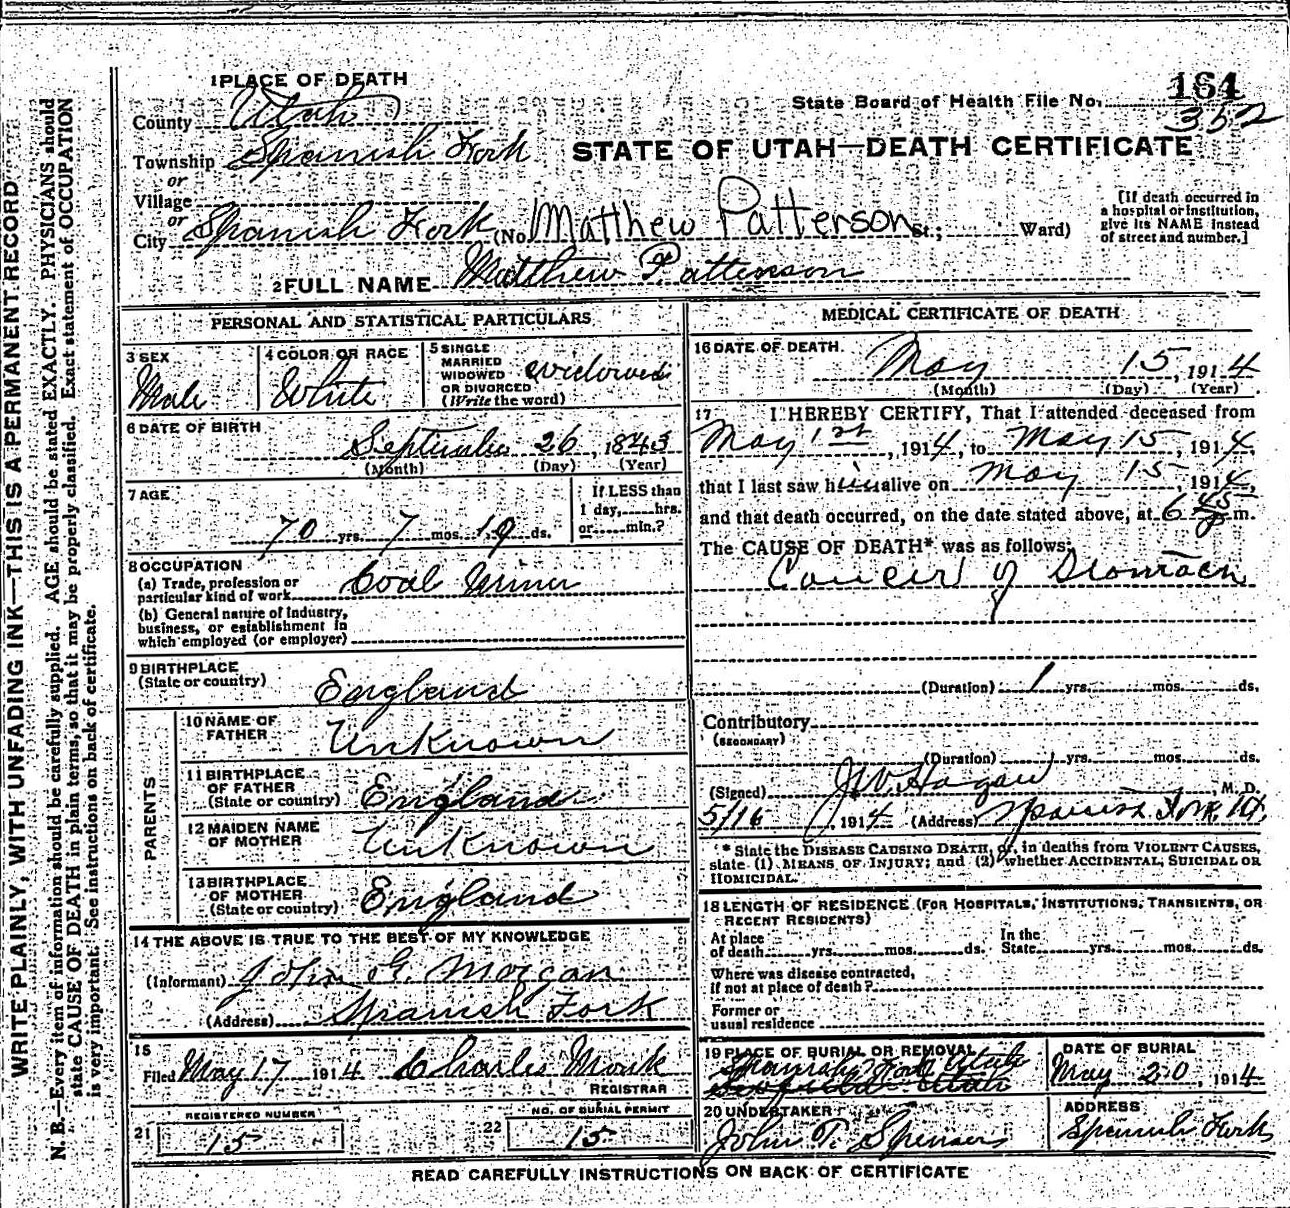 WRITE PLAINLY, WITH UNFADING INK—THIS IS A PERMANENT RECORD
N. B.—Every item of information should be carefully supplied. AGE should be stated EXACTLY. PHYSICIANS should
state CAUSE OF DEATH in plain terms, so that it may be properly classified. Exact statement of OCCUPATION
is very important. See instructions on back of certificate.
1 PLACE OF DEATH
County Utah
Township Spanish Fork
or
Village
or
City Spanish Fork (No. Matthew Patterson St.; Ward)
State Board of Health File No. 164
352
STATE OF UTAH—DEATH CERTIFICATE
[If death occurred in
a hospital or institution,
give its NAME instead
of street and number.]
2 FULL NAME Matthew Patterson
PERSONAL AND STATISTICAL PARTICULARS
3 SEX
Male
4 COLOR OR RACE
White
5 SINGLE
MARRIED
WIDOWED
OR DIVORCED
(Write the word)
widowed
6 DATE OF BIRTH
September 26, 1843
(Month) (Day) (Year)
7 AGE
70 yrs. 7 mos. 19 ds.
If LESS than
1 day, hrs.
or min.?
8 OCCUPATION
(a) Trade, profession or
particular kind of work Coal Miner
(b) General nature of industry,
business, or establishment in
which employed (or employer)
9 BIRTHPLACE
(State or country)
England
PARENTS
10 NAME OF
FATHER
Unknown
11 BIRTHPLACE
OF FATHER
(State or country) England
12 MAIDEN NAME
OF MOTHER
Unknown
13 BIRTHPLACE
OF MOTHER
(State or country) England
14 THE ABOVE IS TRUE TO THE BEST OF MY KNOWLEDGE
(Informant) John G. Morgan
(Address) Spanish Fork
15
Filed May 17 1914 Charles Monk
REGISTRAR
REGISTERED NUMBER
21 15
NO. OF BURIAL PERMIT
22 15
MEDICAL CERTIFICATE OF DEATH
16 DATE OF DEATH
May 15, 1914
(Month) (Day) (Year)
17 I HEREBY CERTIFY, That I attended deceased from
May 1st, 1914, to May 15, 1914,
that I last saw him alive on May 15, 1914,
and that death occurred, on the date stated above, at 6 45 p m.
The CAUSE OF DEATH* was as follows:
Cancer of Stomach
(Duration) 1 yrs. mos. ds.
Contributory
(SECONDARY)
(Duration) yrs. mos. ds.
(Signed) J.W. Hagan, M. D.
5/16, 1914 (Address) Spanish Fork, Ut.
* State the DISEASE CAUSING DEATH, or, in deaths from VIOLENT CAUSES,
state (1) MEANS OF INJURY; and (2) whether ACCIDENTAL, SUICIDAL OR
HOMICIDAL.
18 LENGTH OF RESIDENCE (FOR HOSPITALS, INSTITUTIONS, TRANSIENTS, OR
RECENT RESIDENTS)
At place
of death yrs. mos. ds.
In the
State yrs. mos. ds.
Where was disease contracted,
if not at place of death?
Former or
usual residence
19 PLACE OF BURIAL OR REMOVAL
Spanish Fork Utah
Utah
DATE OF BURIAL
May 20, 1914
20 UNDERTAKER
John T. Spenser
ADDRESS
Spanish Fork
READ CAREFULLY INSTRUCTIONS ON BACK OF CERTIFICATE